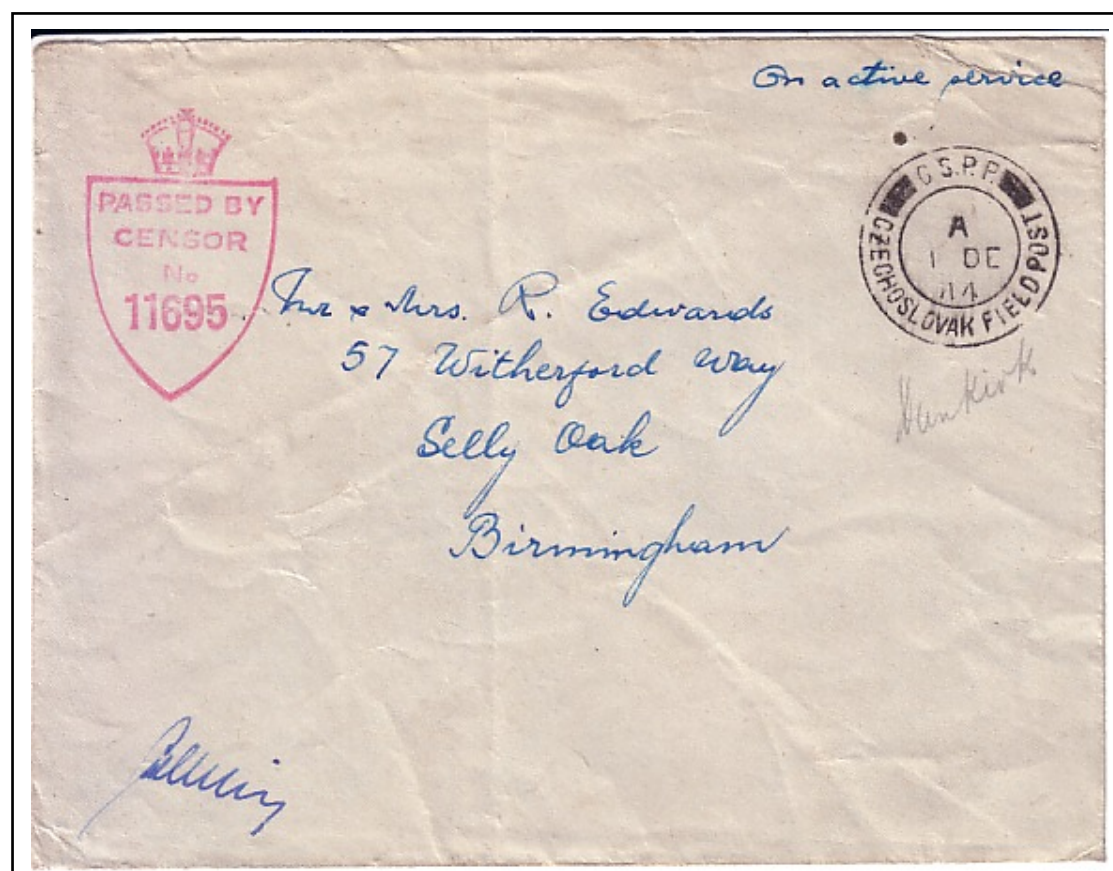 On active service
PASSED BY
CENSOR
No
11695
C.S.P.P.
A
1 DE
44
CZECHOSLOVAK FIELD POST
Mr & Mrs. R. Edwards
57 Witherford Way
Selly Oak
Birmingham
Dunkirk